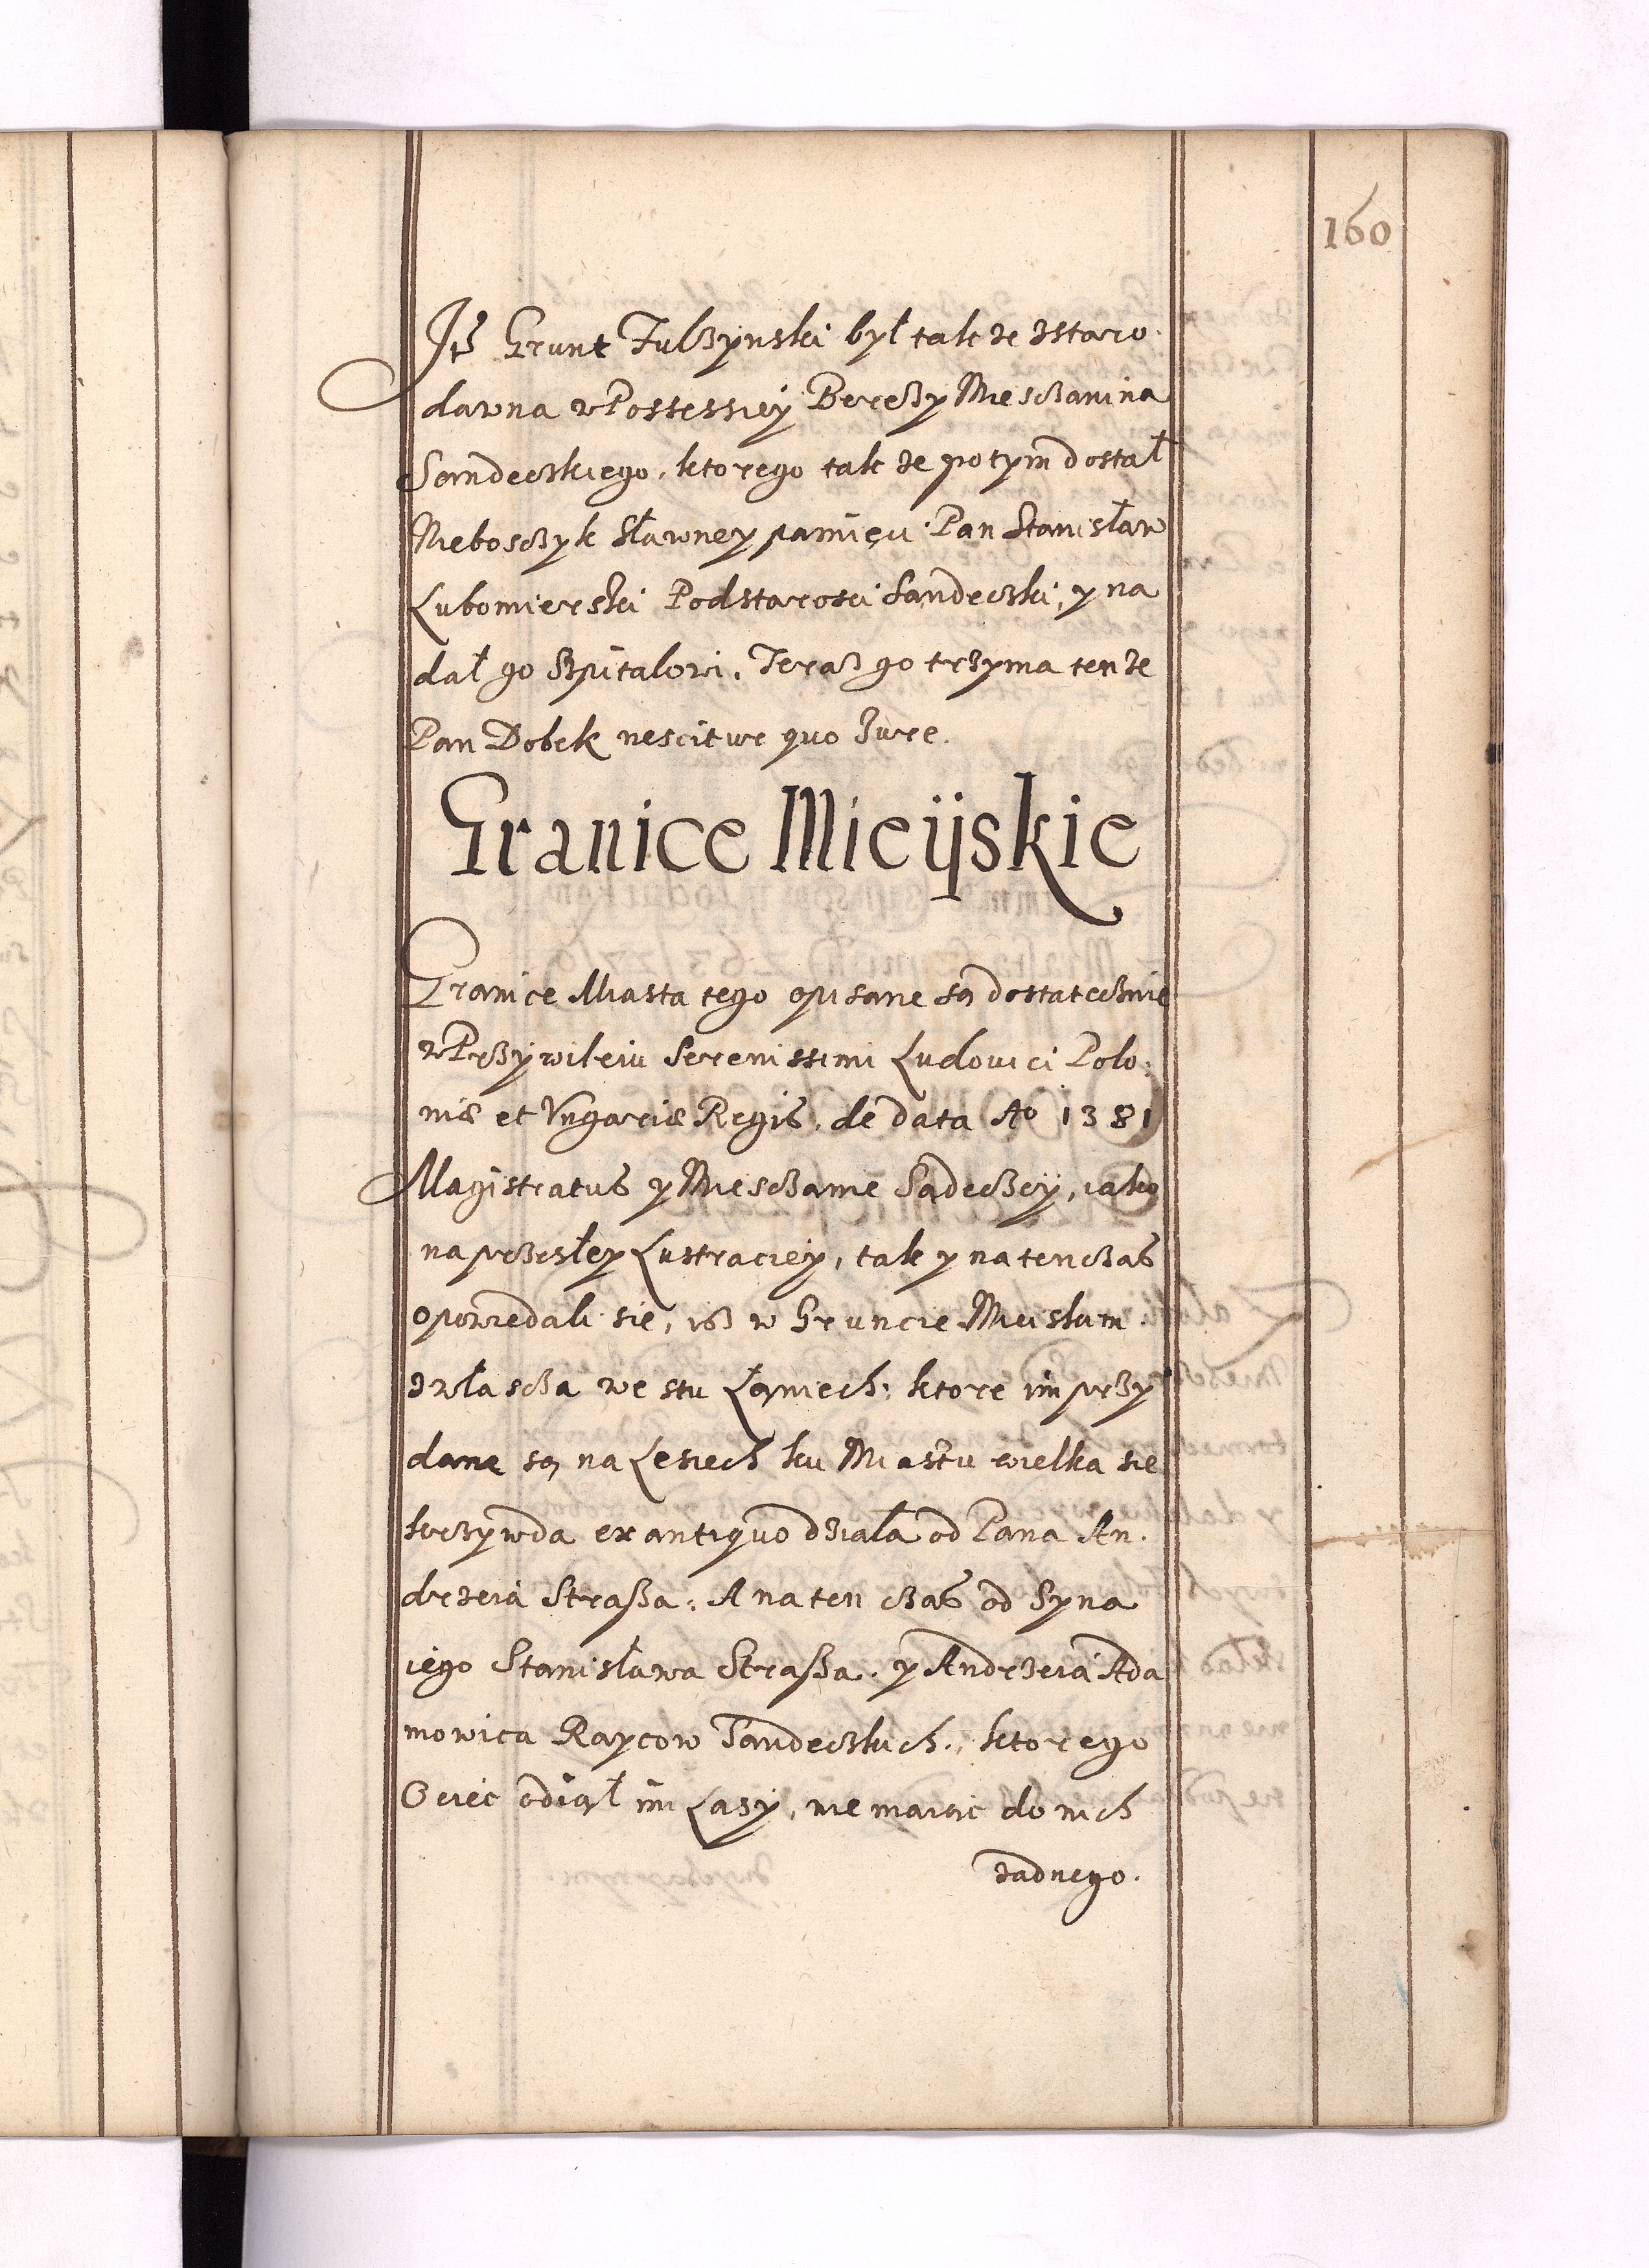 160
Itē Grunt Fulzynski był takze zstaro
dawna w Possessiey Bereczy Miesczanina
Sandeczkiego, ktorego takze potym dostał
Nieboszczyk Sławney pamięci Pan Stanisław
Lubomierski Podstarosci Sandeczki, y na
dał go Szpitalowi. Teraz go trzyma tenze
Pan Dobek nescitur quo Iure.
Granice Mieijskie
Granice Miasta tego opisane są dostatecznie
w Przywileiu Serenissimi Ludovici Polo:
niæ et Vngariæ Regis, de data Aº 1381
Magistratus y Miesczanie Sądeczcÿ, iako
na przesłey Lustraciey, tak y na tenczas
opowiedali sie, isz w Gruncie Mieiskim
zwłascza we stu Łąniech: ktore im przy
dane są na Lesiech ku Miastu wielka sie
krzywda ex antiquo działa od Pana An.
drzeia Straßa: A na ten czas od Syna
iego Stanisława Straßa. y Andrzeia Ada
mowica Raycow Sandeczkich., ktorego
Ociec odiął im Lasy, nie maiąc do nich
zadnego.